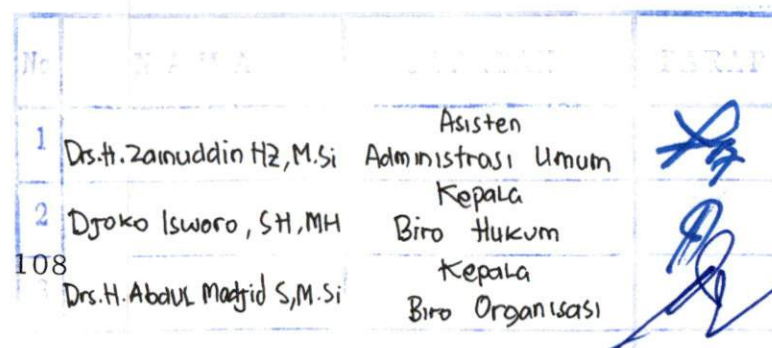 No N A M A JABATAN PARAF
1 Drs.H.Zainuddin HZ, M.Si Asisten Administrasi Umum
2 Djoko Isworo, SH, MH Kepala Biro Hukum
108
3 Drs.H.Abdul Madjid S, M.Si Kepala Biro Organisasi